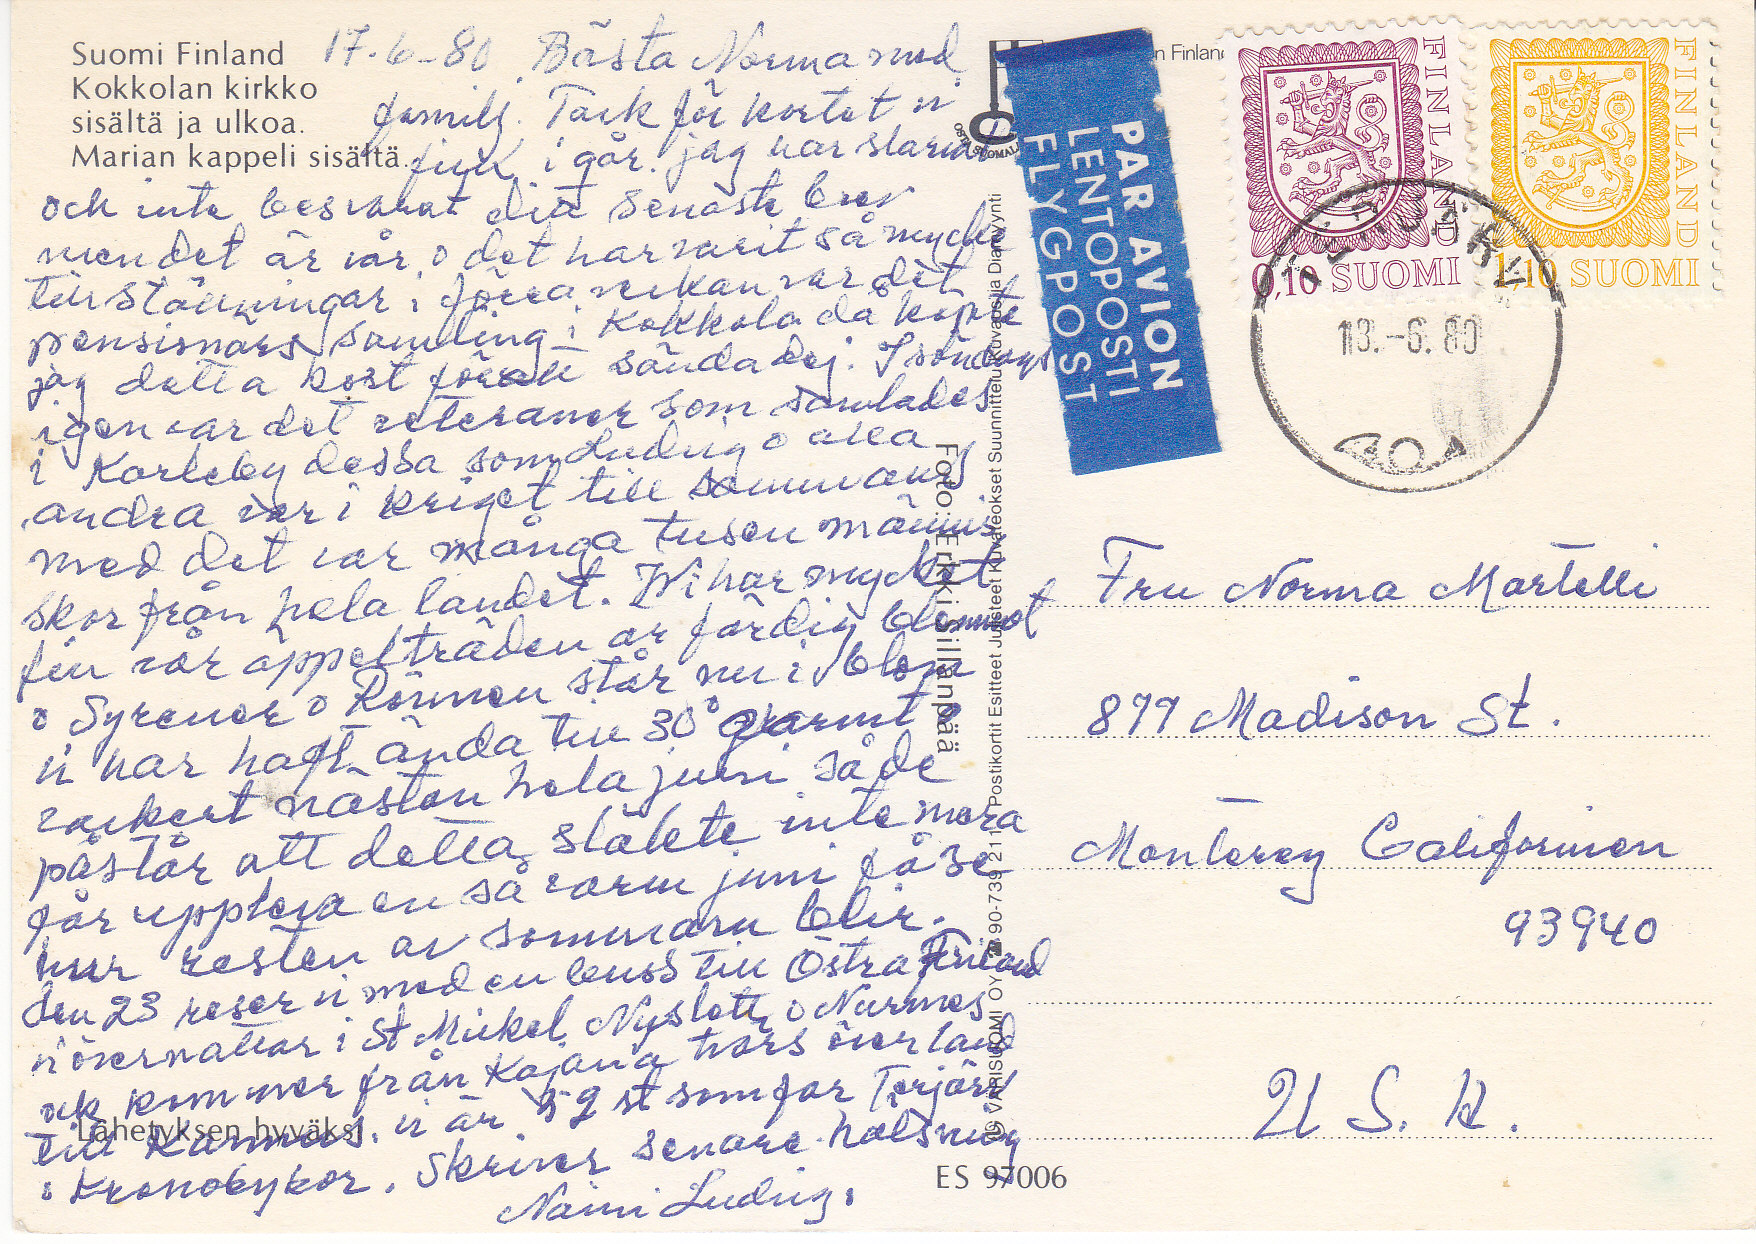 Suomi Finland
Kokkolan kirkko
sisältä ja ulkoa.
Marian kappeli sisältä.
17.6-80. Bästa Norma med
familj. Tack för kortet vi
fick i går. jag har slarvat
och inte besvarat ditt senaste brev
men det är vår o det har varit så mycke
tillställningar, i förra veckan var det
pensionärs samling i Kokkola då köpte
jag detta kort för att sända dej. I söndags
igen var det veteraner som samlades
i Karleby dessa som Ludvig o alla
andra var i kriget till sammans
med det var många tusen männis
skor från hela landet. Vi har mycket
fin vår äppelträden är färdig blommat
o Syrener o Rönnen står nu i blom
vi har haft ända till 30° varmt o
vackert nästan hela juni så de
påstår att detta släkte inte mera
får uppleva en så varm juni få se
hur resten av sommarn blir.
den 23 reser vi med en buss till Östra Finland
vi övernattar i St Mickel, Nyslott, o Nurmes
och kommer från Kajana tvärs över land
till Kannus. vi är 52 st som far Terjärv
o Kronobykor. Skriver senare. hälsning
Naimi Ludvig.
Lähetyksen hyväksi
Foto: Erkki Sillanpää
ES 97006
PAR AVION
LENTOPOSTI
FLYGPOST
FINLAND
0,10 SUOMI
FINLAND
1,10 SUOMI
18.-6.80
Fru Norma Martelli
877 Madison St.
Monterey Californien
93940
U.S.A.